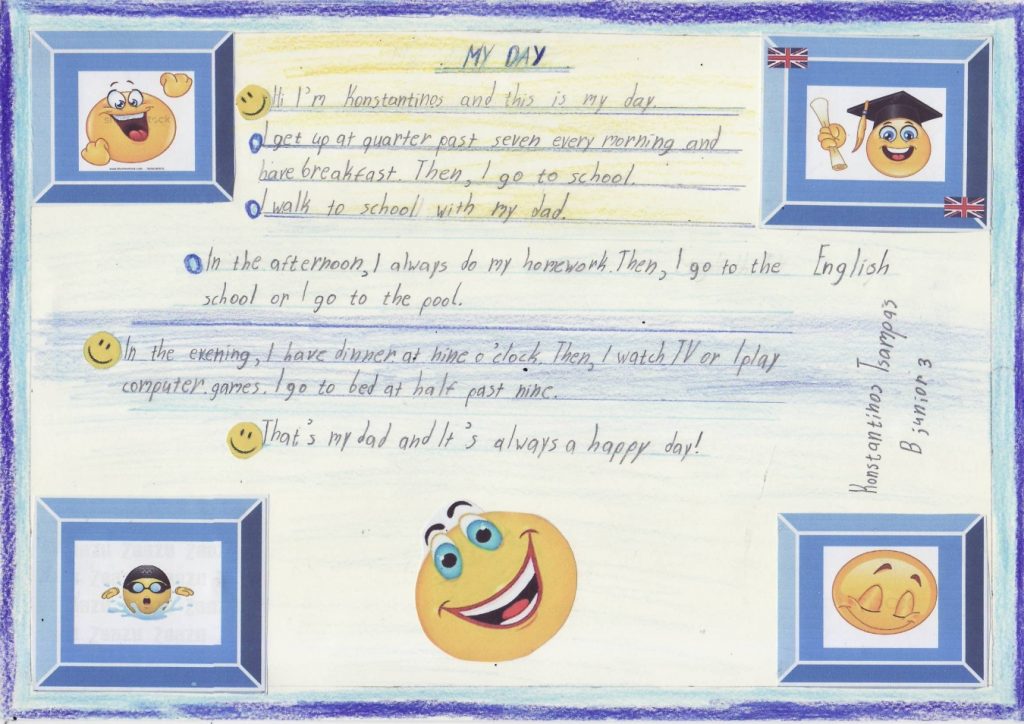 MY DAY
Hi I'm Konstantinos and this is my day.
I get up at quarter past seven every morning and
have breakfast. Then, I go to school.
I walk to school with my dad.
In the afternoon, I always do my homework. Then, I go to the English
school or I go to the pool.
In the evening, I have dinner at nine o'clock. Then, I watch TV or I play
computer games. I go to bed at half past nine.
That's my dad and It's always a happy day!
Konstantinos Tsampas
B junior 3